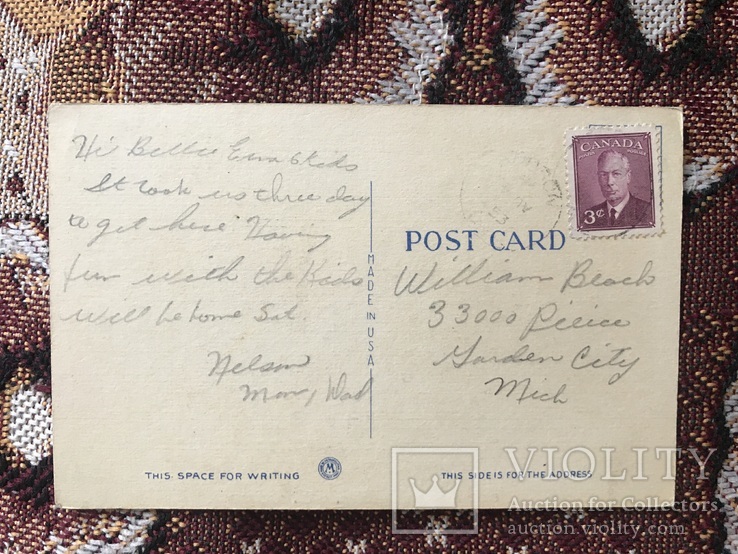 Hi Billie Erva & Kids
It took us three day
to get here Having
fun with the Kids
Will be home Sat.
Nelson
Mom, Dad
THIS SPACE FOR WRITING
M
MADE IN USA
CANADA
POSTES POSTAGE
3¢
POST CARD
William Beach
33000 Pierce
Garden City
Mich
THIS SIDE IS FOR THE ADDRESS
VIOLITY
Auction for Collectors
auction.violity.com